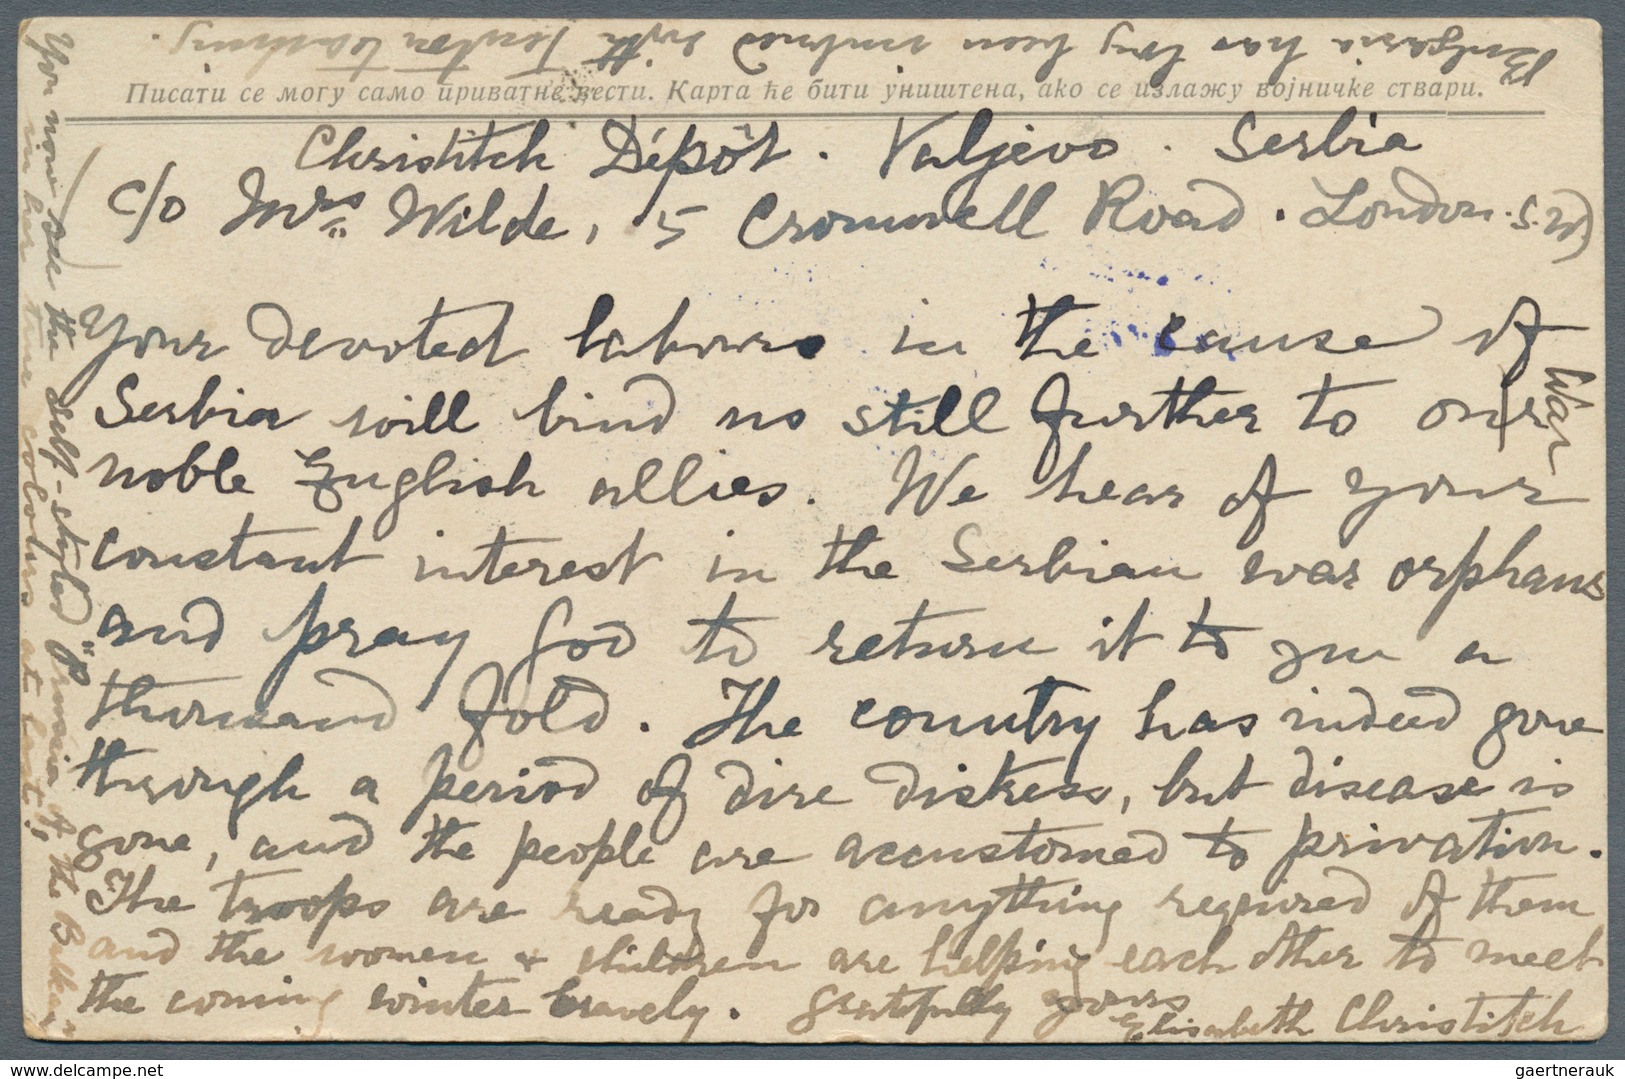 Писати се могу само приватне вести. Карта ће бити уништена, ако се излажу војничке ствари.
Christitch Dépôt. Valjevo. Serbia
(c/o Mrs Wilde, 5 Cromwell Road. London. S.W)
Your devoted labours in the cause of
Serbia will bind us still further to our
noble English allies. We hear of your
constant interest in the Serbian war orphans
and pray God to return it to you a
thousand fold. The country has indeed gone
through a period of dire distress, but disease is
gone, and the people are accustomed to privation.
The troops are ready for anything required of them
and the women & children are helping each other to meet
the coming winter bravely. Gratefully yours
Elisabeth Christitch
War
You now see the self-styled "Prussia of the Balkans"
in her true colours at last!
Bulgaria has long been imbued with